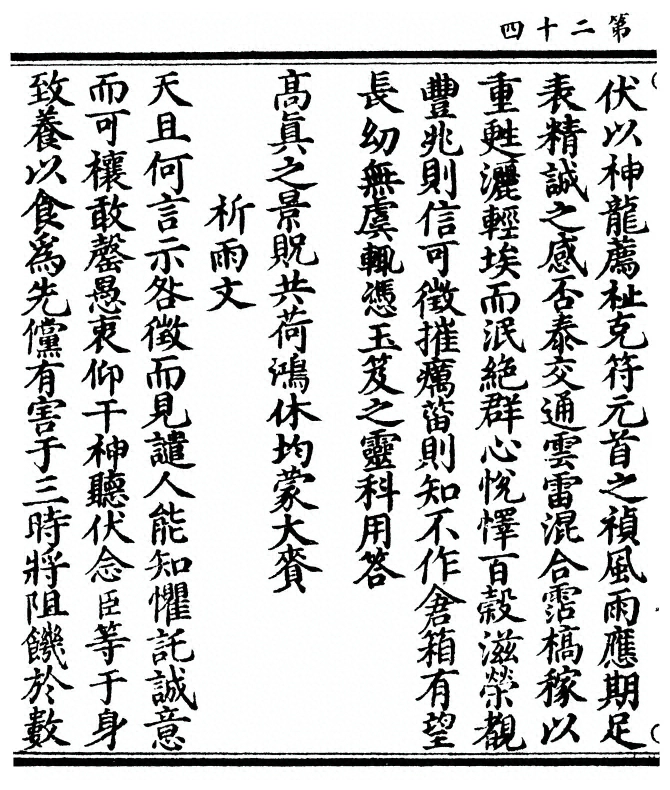 第二十四
伏以神龍薦祉克符元首之禎風雨應期足
表精誠之感否泰交通雲雷混合霑槁稼以
重甦灑輕埃而泯絶群心悅懌百穀滋榮覩
豐兆則信可徵摧癘菑則知不作倉箱有望
長幼無虞輒憑玉笈之靈科用答
髙眞之景貺共荷鴻休均蒙大賚
祈雨文
天且何言示咎徵而見譴人能知懼託誠意
而可禳敢罄愚衷仰干神聽伏念臣等于身
致養以食爲先儻有害于三時將阻饑於數